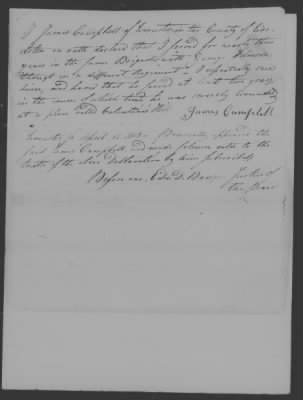 I James Campbell of Worcester in the County of Wor-
cester on oath declare that I served for nearly three
years in the same Brigade with George
though in a different Regiment & I repeatedly saw
him, and know that he served at least two years
in the
at a place called Valentine's Hill
James Campbell
Worcester ss April 1818 - Personally appeared the
said James Campbell and made solemn oath to the
truth of the above Declaration by him subscribed
Before me. Edwd. Bangs Justice of
the Peace